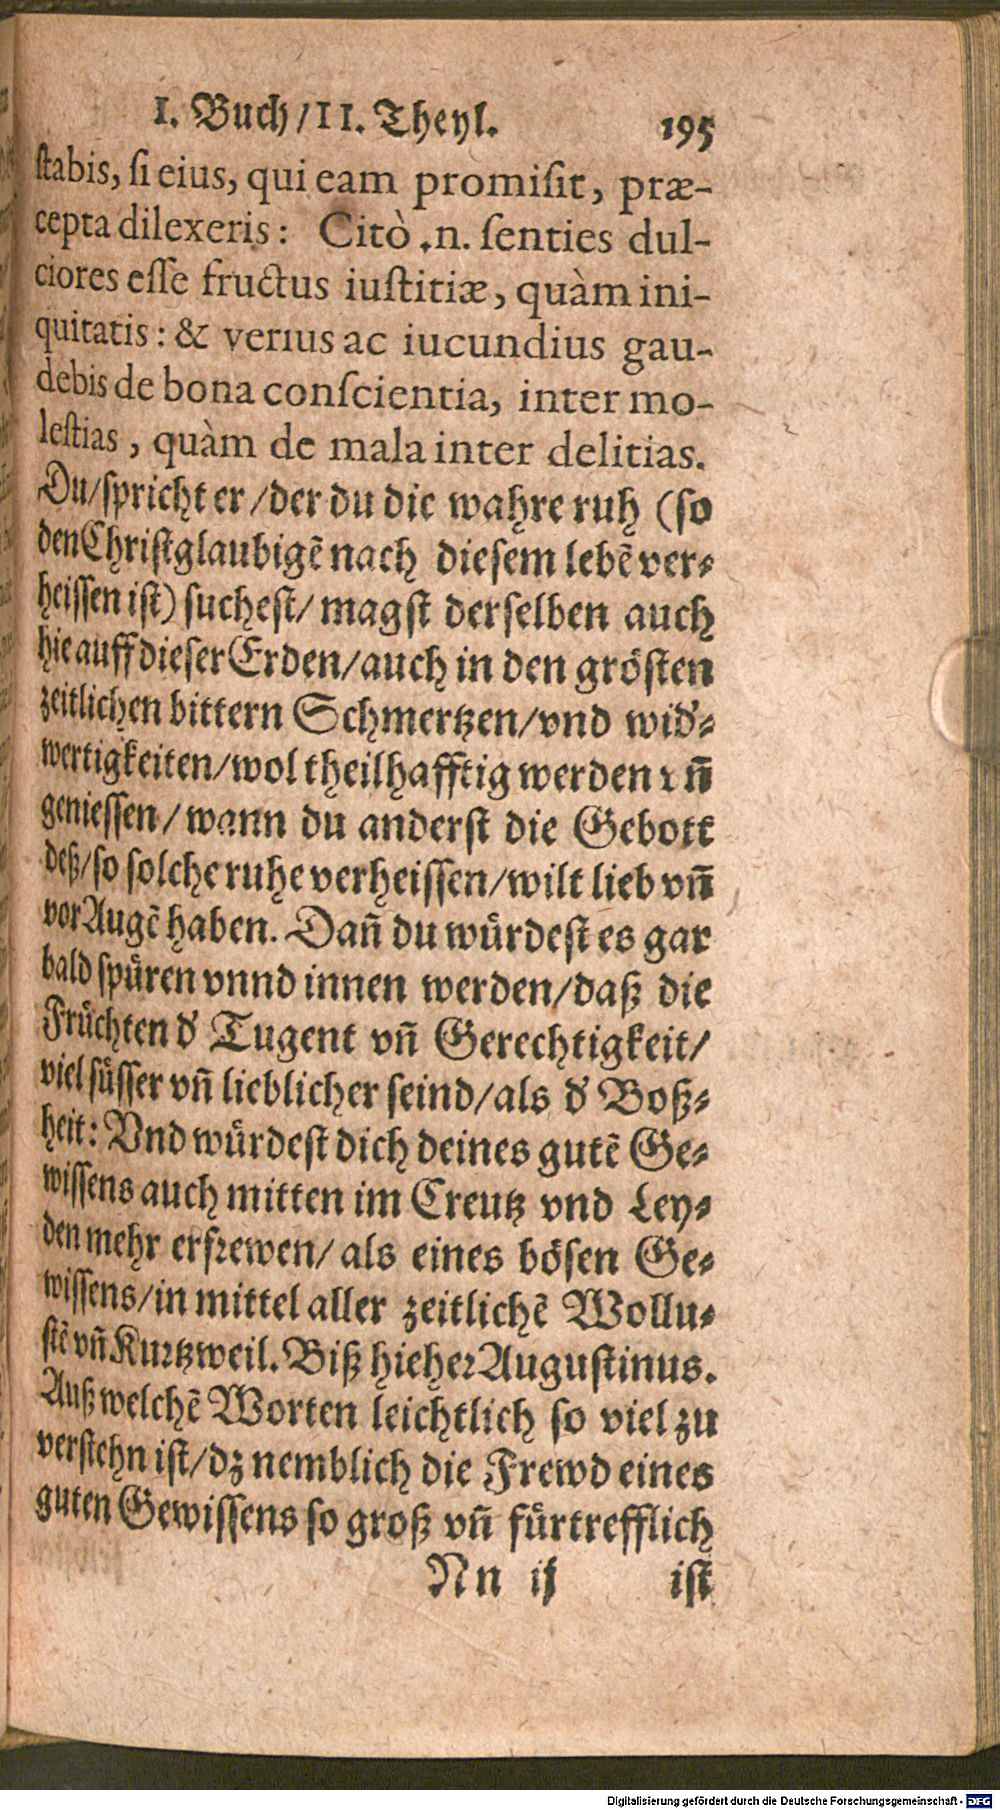 I. Buch/II. Theyl. 195
ſtabis, ſi eius, qui eam promiſit, præ-
cepta dilexeris: Citò .n. ſenties dul-
ciores eſſe fructus iuſtitiæ, quàm ini-
quitatis: & verius ac iucundius gau-
debis de bona conſcientia, inter mo-
leſtias, quàm de mala inter delitias.
Du/ſpricht er/der du die wahre ruh (ſo
den Chriſtglaubigẽ nach dieſem lebẽ ver-
heiſſen iſt) ſucheſt/ magſt derſelben auch
hie auff dieſer Erden/auch in den gröſten
zeitlichen bittern Schmertzen/vnd wid'-
wertigkeiten/wol theilhafftig werden vñ
genieſſen/ wann du anderſt die Gebott
deß/ſo ſolche ruhe verheiſſen/wilt lieb vñ
vor Augẽ haben. Dañ du würdeſt es gar
bald ſpüren vnnd innen werden/daß die
Früchten d' Tugent vñ Gerechtigkeit/
viel ſüſſer vñ lieblicher ſeind/als d' Boß-
heit: Vnd würdeſt dich deines gutẽ Ge-
wiſſens auch mitten im Creutz vnd Ley-
den mehr erfrewen/ als eines böſen Ge-
wiſſens/in mittel aller zeitlichẽ Wollu-
ſtẽ vñ Kurtzweil. Biß hieher Auguſtinus.
Auß welchẽ Worten leichtlich ſo viel zu
verſtehn iſt/dz nemblich die Frewd eines
guten Gewiſſens ſo groß vñ fürtrefflich
Nn ij iſt
Digitalisierung gefördert durch die Deutsche Forschungsgemeinschaft - DFG